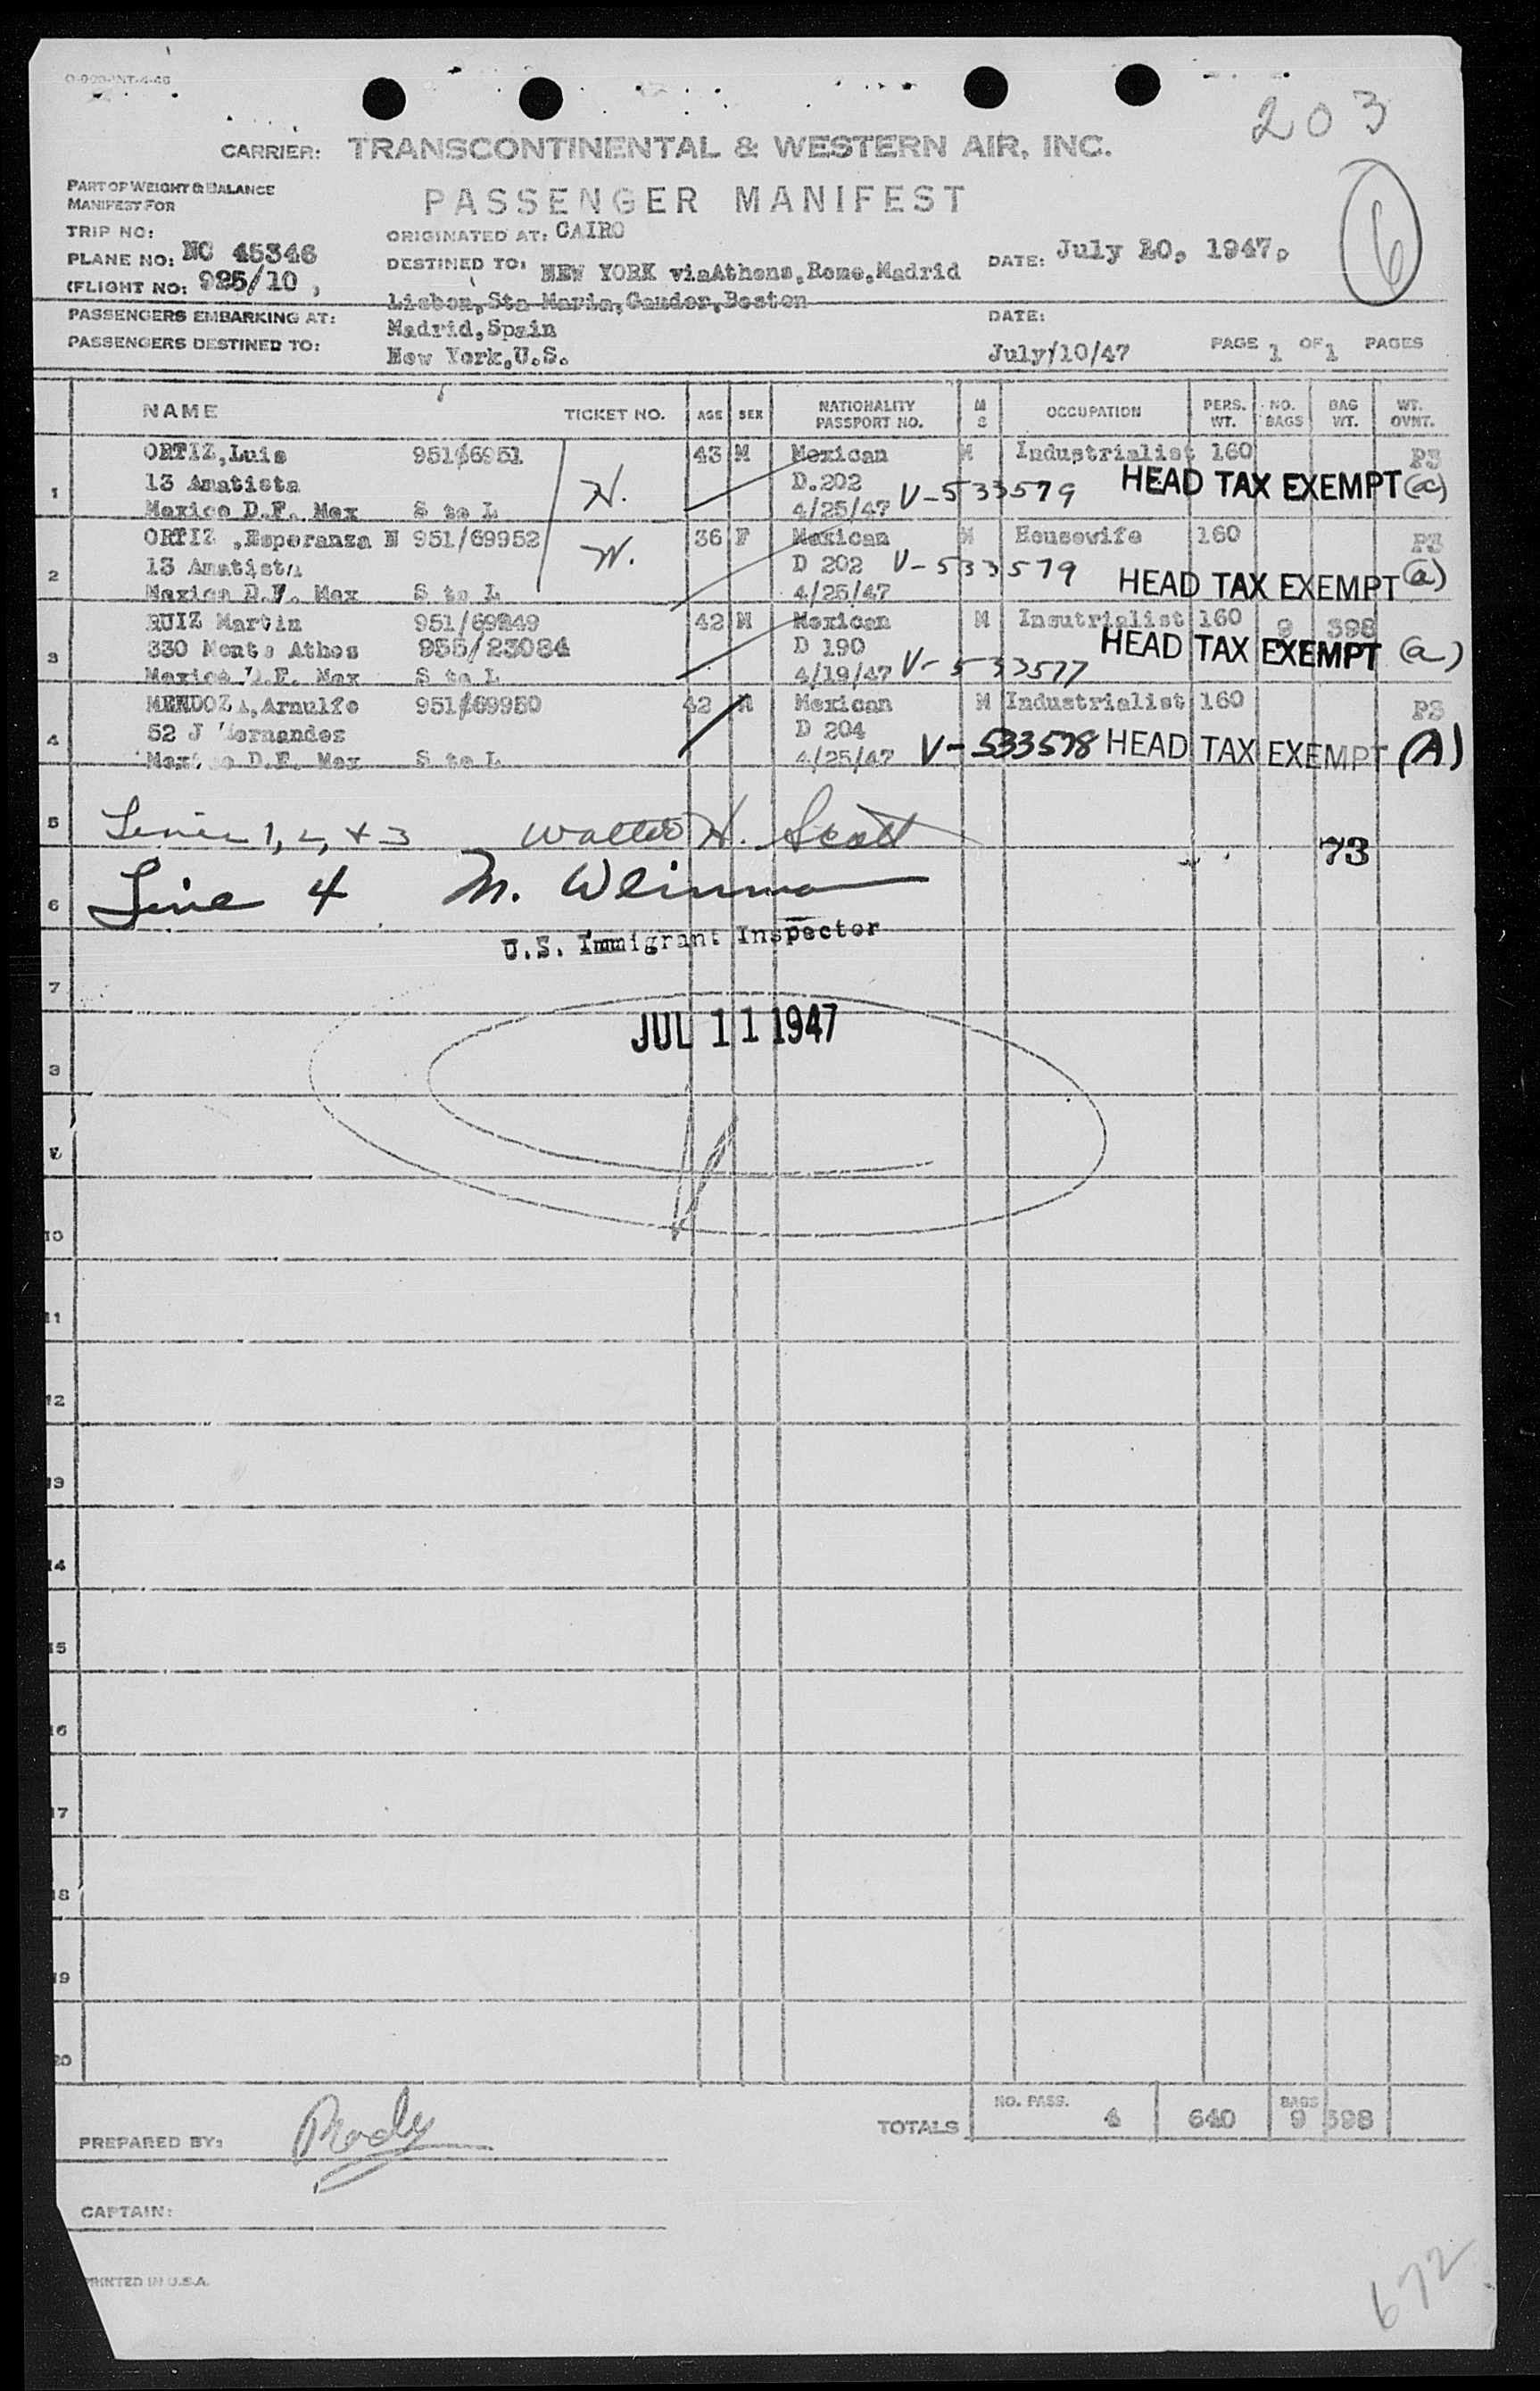 203
CARRIER: TRANSCONTINENTAL & WESTERN AIR, INC.
PART OF WEIGHT & BALANCE
MANIFEST FOR
PASSENGER MANIFEST
6
TRIP NO:
ORIGINATED AT: CAIRO
PLANE NO: NC 45346
DESTINED TO: NEW YORK viaAthens,Rome,Madrid
DATE: July 10, 1947
(FLIGHT NO: 925/10 ,
Lisbon,Sta Maria,Gander,Boston
PASSENGERS EMBARKING AT: Madrid,Spain
DATE:
PASSENGERS DESTINED TO: New York,U.S.
July/10/47
PAGE 1 OF 1 PAGES
NAME TICKET NO. AGE SEX NATIONALITY PASSPORT NO. M S OCCUPATION PERS. WT. NO. BAGS BAG WT. WT. OVNT.
ORTIZ,Luis 951/6951 43 M Mexican M Industrialist 160 PS
1 13 Amatista H. D.202 V-533579 HEAD TAX EXEMPT (a)
Mexico D.F. Mex S to L 4/25/47
ORTIZ ,Esperanza N 951/69952 W. 36 F Mexican M Housewife 160 PS
2 13 Amatista D 202 V-533579 HEAD TAX EXEMPT (a)
Mexico D.F. Mex S to L 4/25/47
RUIZ Martin 951/69949 42 M Mexican M Insutrialist 160 9 598
3 330 Monte Athos 955/23084 D 190 HEAD TAX EXEMPT (a)
Mexico D.F. Mex S to L 4/19/47 V-533577
MENDOZA,Arnulfo 951/69950 42 M Mexican M Industrialist 160 PS
4 52 J Hernandes D 204 V-533578 HEAD TAX EXEMPT (A)
Mexico D.F. Mex S to L 4/25/47
5 Lines 1, 2, + 3 Walter H. Scott
73
6 Line 4 M. Weinman
U.S. Immigrant Inspector
7
JUL 11 1947
8
9
10
11
12
13
14
15
16
17
18
19
20
TOTALS NO. PASS. 4 640 BAGS 9 598
PREPARED BY:
CAPTAIN:
PRINTED IN U.S.A.
672